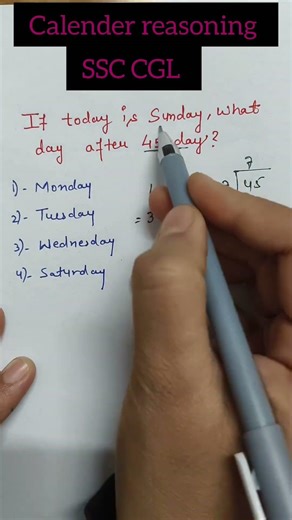 Calender reasoning
SSC CGL
If today is Sunday, what
day after 45 day?
1)- Monday
2)- Tuesday
= 3
7
45
3)- Wednesday
4)- Saturday